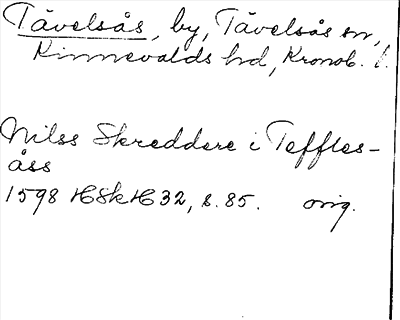 Tävelsås, by, Tävelsås sn,
Kinnevalds hd, Kronob. l.
Nilss Skreddere i Teffles-
åss
1598 HSkH 32, s. 85. orig.